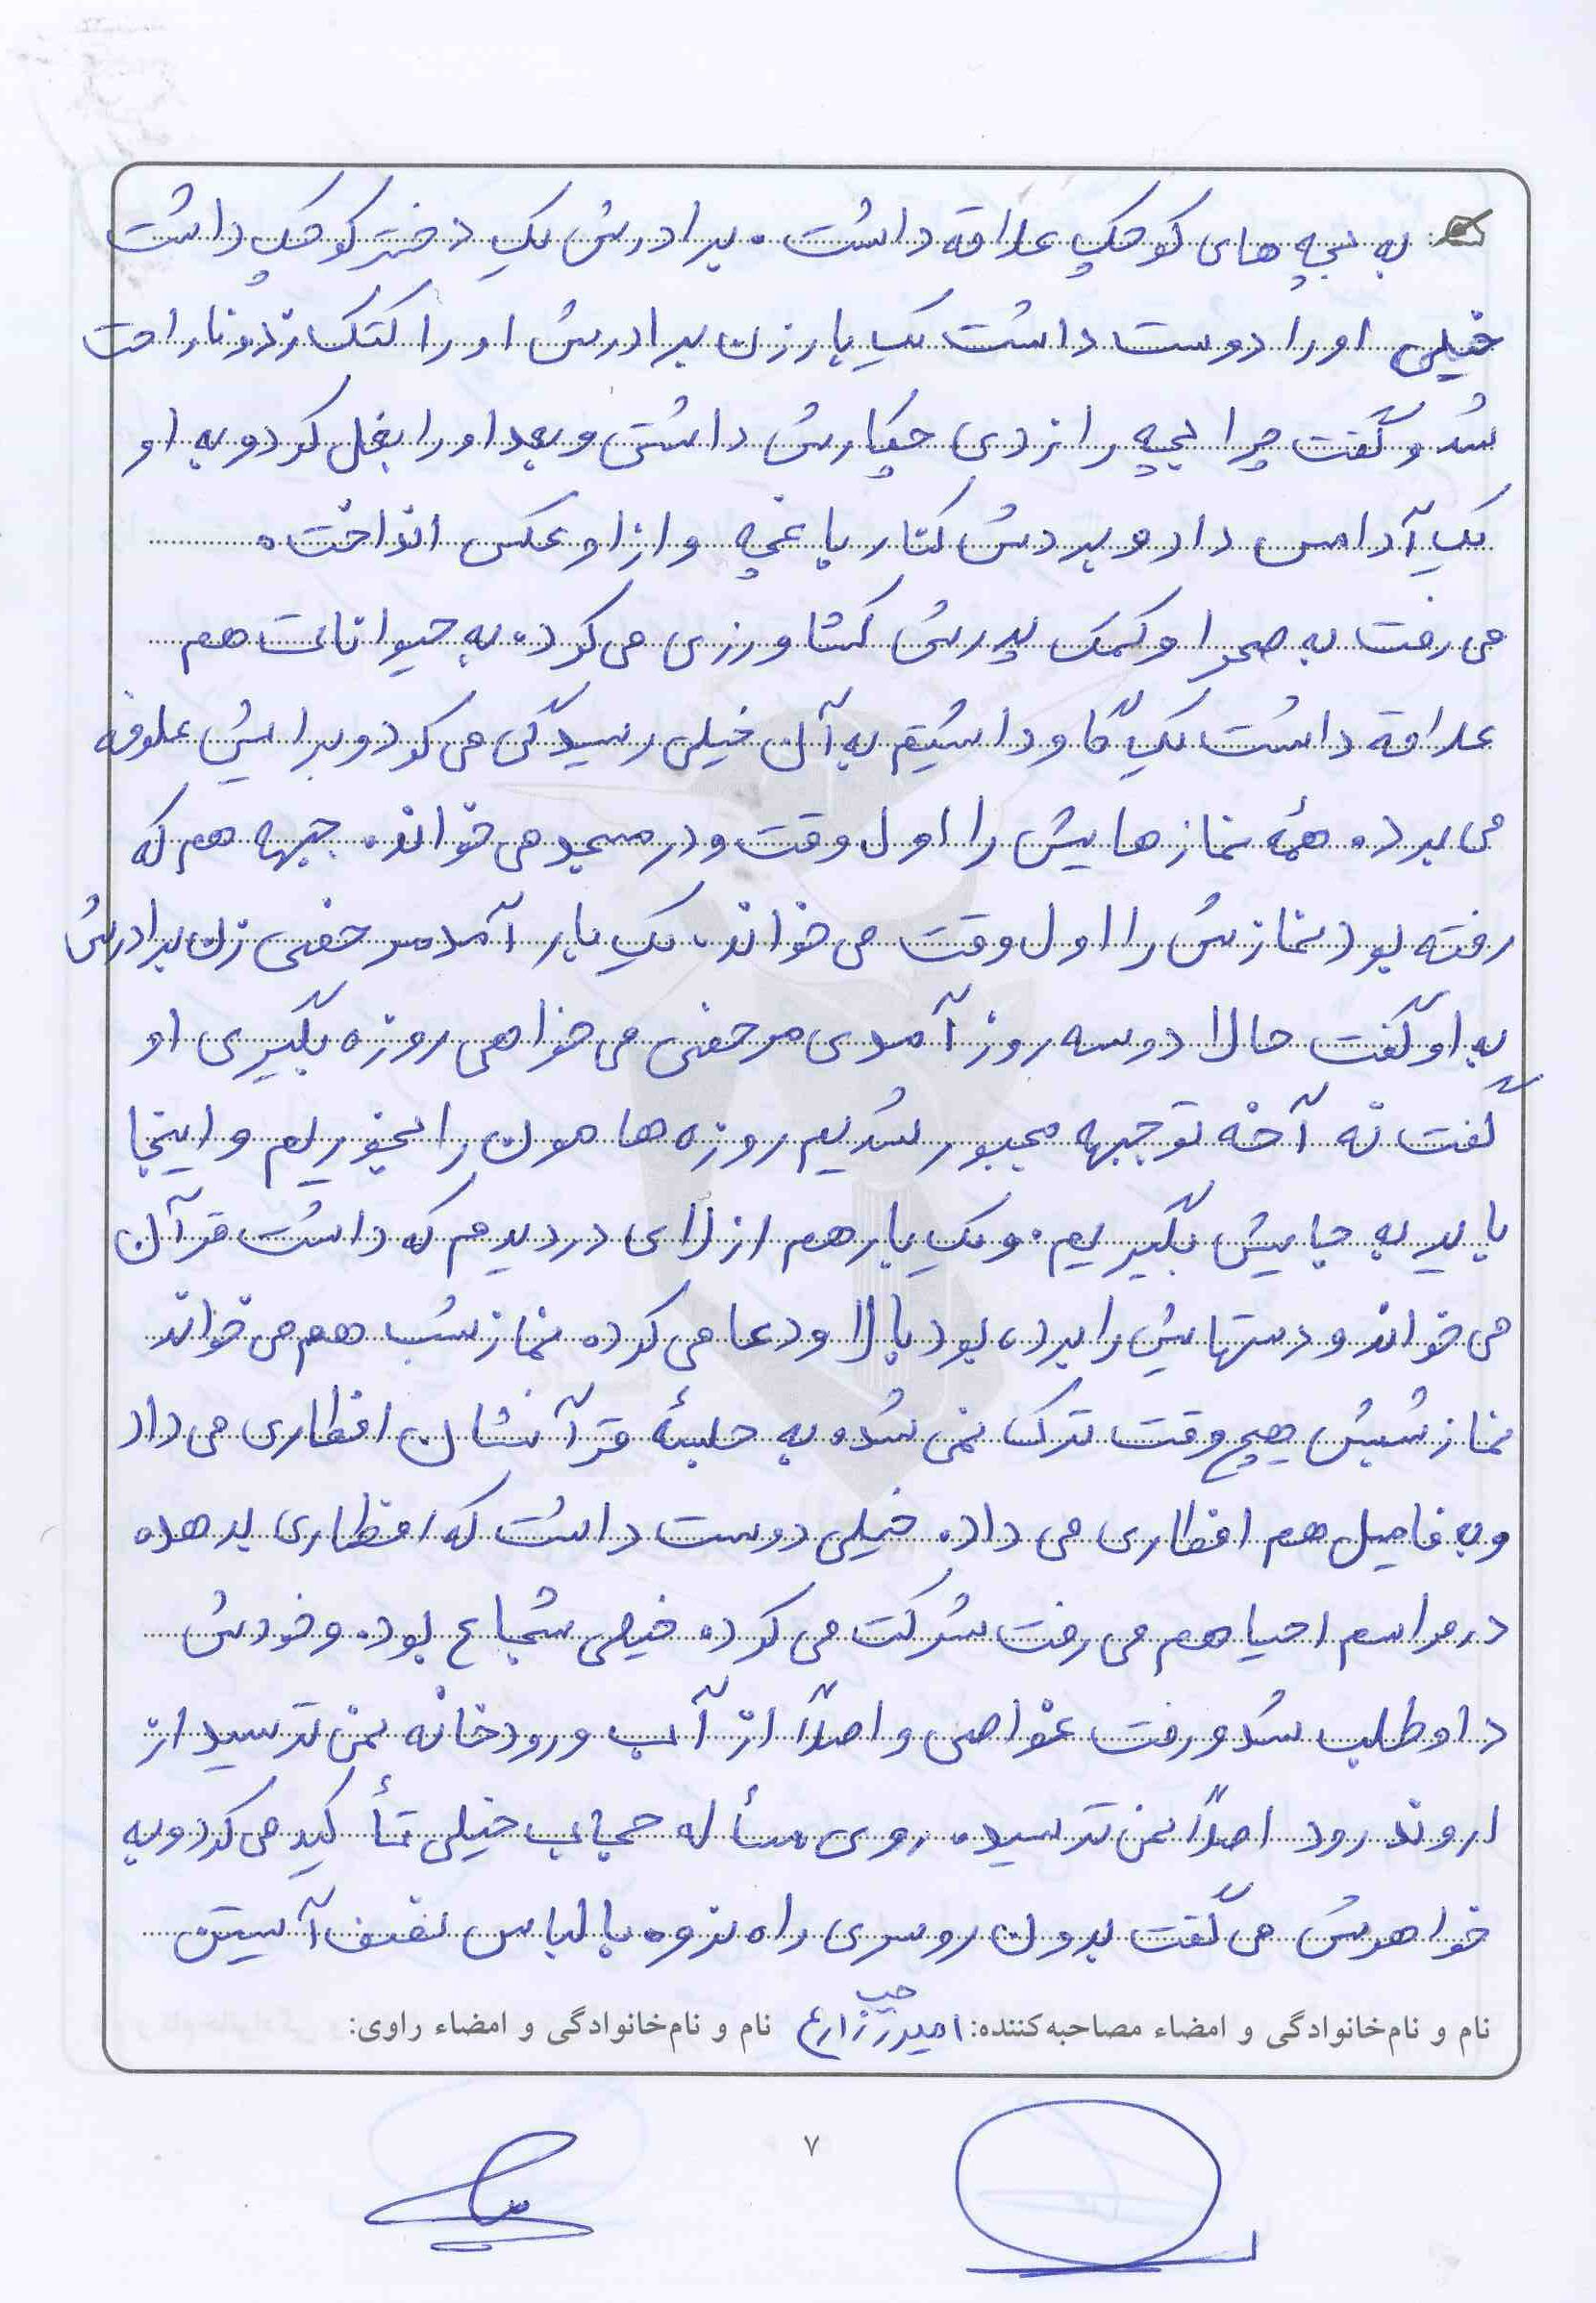 به بچه های کوچک علاقه داشت. برادرش یک دختر کوچک داشت
خیلی او را دوست داشت یک بار زن برادرش او را کتک زد و ناراحت
شد و گفت چرا بچه را زدی چیکارش داشتی و بعد او را بغل کرد و به او
یک آدامس داد و بردش کنار باغچه و از او عکس انداخت.
می رفت به صحرا و کمک پدرش کشاورزی می کرد. به حیوانات هم
علاقه داشت یک گاو داشتیم به آن خیلی رسیدگی می کرد و برایش علوفه
می برد. همهٔ نمازهایش را اول وقت و در مسجد می خواند. جبهه هم که
رفته بود نمازش را اول وقت می خواند. یک بار آمد مرخصی زن برادرش
به او گفت حالا دو سه روز آمدی مرخصی می خواهی روزه بگیری او
گفت نه آخه تو جبهه مجبور شدیم روزه هامون را بخوریم و اینجا
باید به جایش بگیریم. و یک بار هم از لای در دیدم که داشت قرآن
می خواند و دستهایش را برده بود بالا و دعا می کرد. نماز شب هم می خواند
نماز شبش هیچ وقت ترک نمی شد. به جلسهٔ قرآنشان افطاری می داد
و به فامیل هم افطاری می داد. خیلی دوست داشت که افطاری بدهد.
در مراسم احیا هم می رفت شرکت می کرد. خیلی شجاع بود. و خودش
داوطلب شد و رفت غواصی و اصلاً از آب و رودخانه نمی ترسید از
اروند رود اصلاً نمی ترسید. روی مسأله حجاب خیلی تأکید می کرد و به
خواهرش می گفت بدون روسری راه نرو. با لباس نصف آستین
حبیب
نام و نام‌خانوادگی و امضاء مصاحبه‌کننده: امیر زارع نام و نام‌خانوادگی و امضاء راوی:
۷